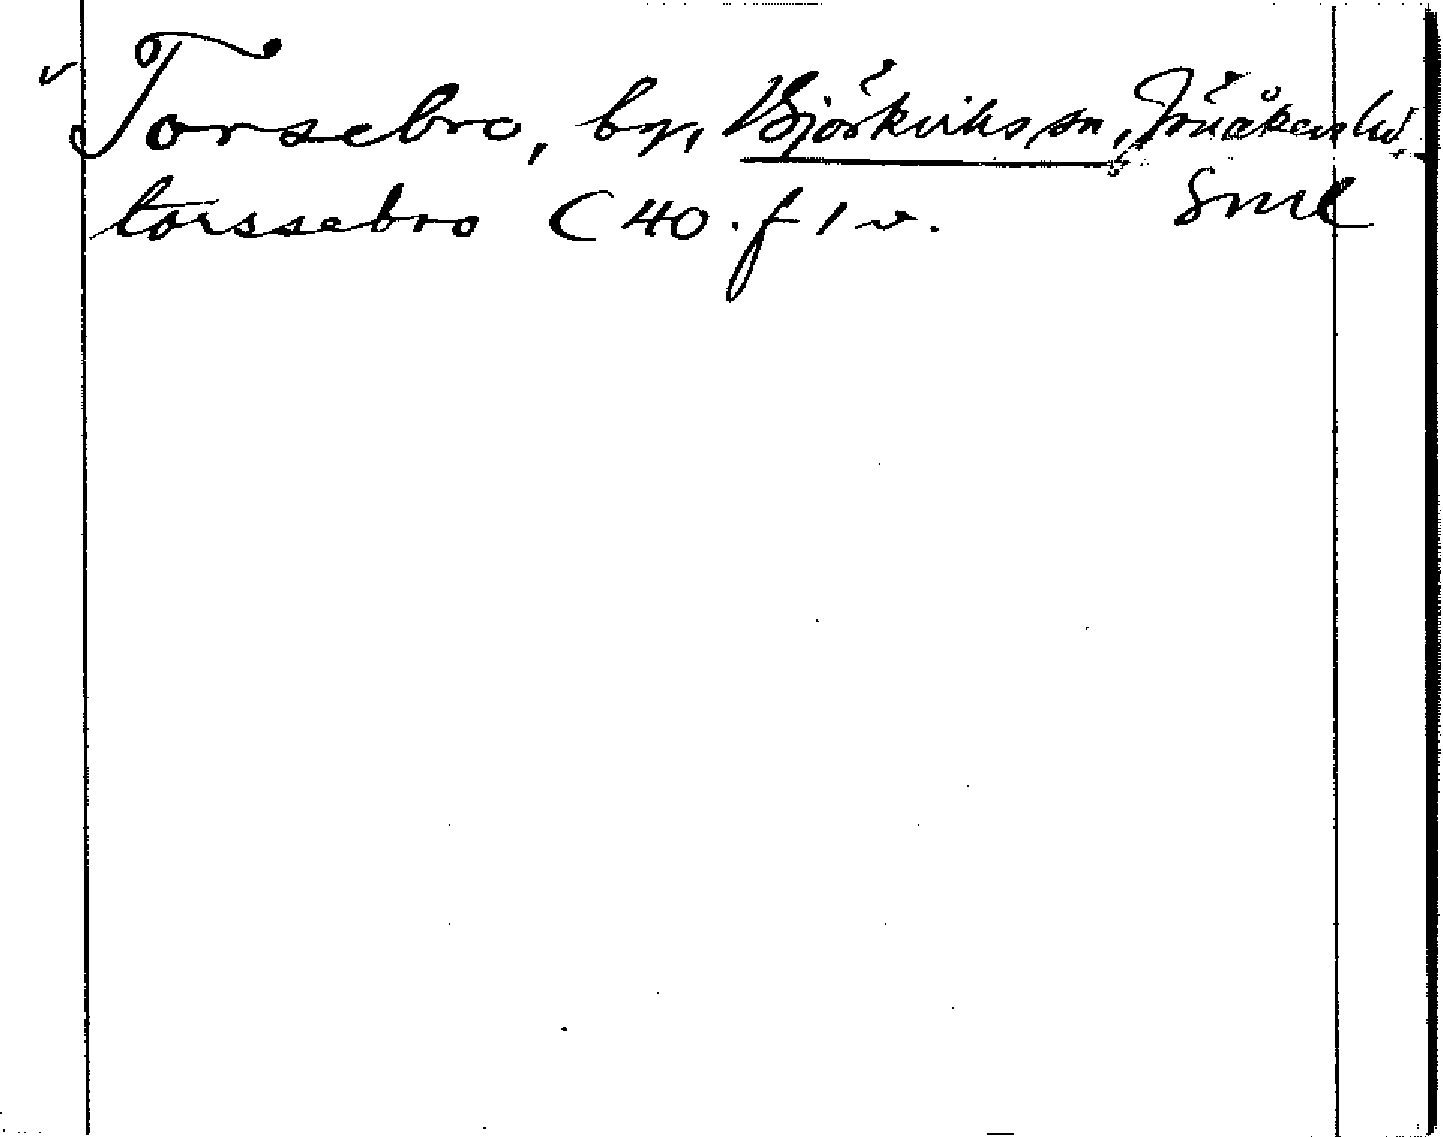 v Torsebro, by, Björkviks sn, Jönåkers hd.
torssebro C 40. f 1 v. Sml